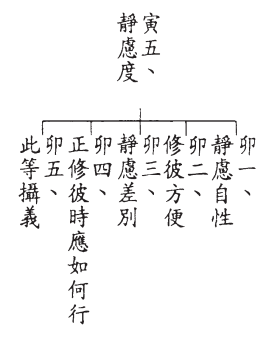 寅五、
靜慮度
卯一、
靜慮自性
卯二、
修彼方便
卯三、
靜慮差別
卯四、
正修彼時應如何行
卯五、
此等攝義